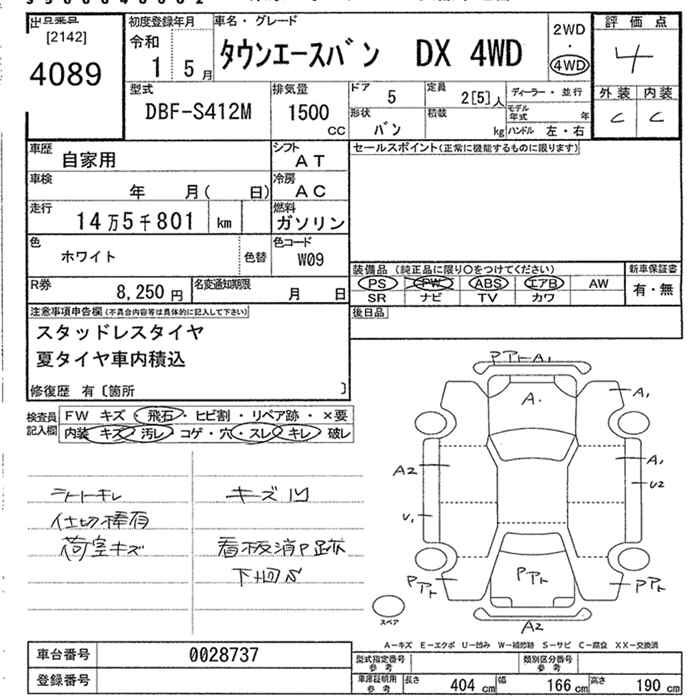 出品番号 [2142] 4089
初度登録年月 令和 1 5 月
車名・グレード タウンエースバン DX 4WD
2WD ・ 4WD
評価点 4
外装 内装
C C
型式 DBF-S412M
排気量 1500 CC
ドア 5
定員 2[5] 人
ディーラー・並行
形状 バン
積載 kg
モデル年式 年
ハンドル 左・右
車歴 自家用
シフト AT
セールスポイント(正常に機能するものに限ります)
車検 年 月( 日)
冷房 AC
走行 14万5千801 km
燃料 ガソリン
色 ホワイト 色替
色コード W09
装備品 (純正品に限り〇をつけてください)
新車保証書
PS PW ABS エアB AW
有・無
SR ナビ TV カワ
R券 8,250 円
名変通知期限 月 日
後日品
注意事項申告欄(不具合内容等は具体的に記入して下さい)
スタッドレスタイヤ
夏タイヤ車内積込
修復歴 有〔箇所 〕
検査員記入欄
FW キズ・飛石・ヒビ割・リペア跡・×要
内装 キズ 汚レ・コゲ・穴・スレ・キレ 破レ
シートキレ キズ凹
仕切棒有
荷室キズ 看板消P跡
下回S
PアトA1
A
A1
A2
A1
U2
U1
Pアト
Pアト
Pアト
A2
スペア
A-キズ E-エクボ U-凹み W-補修跡 S-サビ C-腐食 XX-交換済
車台番号 0028737
登録番号
型式指定番号 参考
類別区分番号 参考
車庫証明用 参考 長さ 404 cm 幅 166 cm 高さ 190 cm